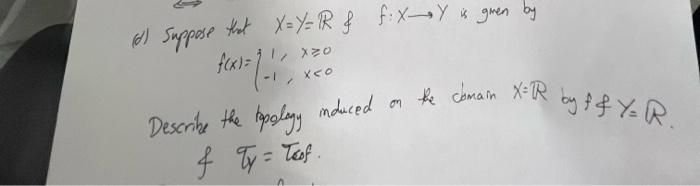 (d) Suppose that X=Y=ℝ & f: X→Y is given by
f(x)= { 1, x≥0
-1, x<0
Describe the topology induced on the domain X=ℝ by f & Y=ℝ.
& τ_Y = τ_cof.